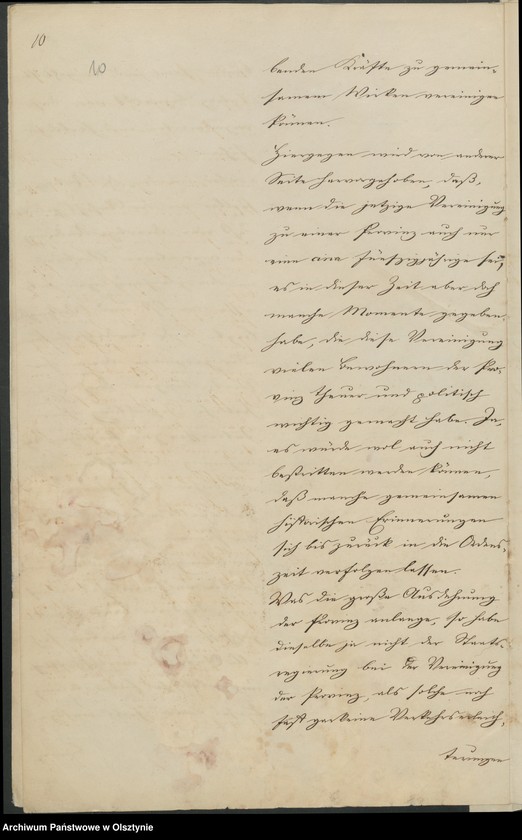 10
10
benden Kräfte zu gemein-
samem Wirken vereinigen
können.
Hiergegen wird von anderer
Seite hervorgehoben, daß,
wenn die jetzige Vereinigung
zu einer Provinz auch nur
eine circa fünfzigjährige sei,
es in dieser Zeit aber doch
manche Momente gegeben
habe, die diese Vereinigung
vielen Bewohnern der Pro-
vinz theuer und politisch
wichtig gemacht habe. Ja,
es würde wol auch nicht
bestritten werden können,
daß manche gemeinsamen
historischen Erinnerungen
sich bis zurück in die Ordens-
zeit verfolgen lassen.
Was die große Ausdehnung
der Provinz anlange, so habe
dieselbe ja nicht der Staats-
regierung bei der Vereinigung
der Provinz, als solche noch
fast gar keine Verkehrserleich-
terungen
Archiwum Państwowe w Olsztynie